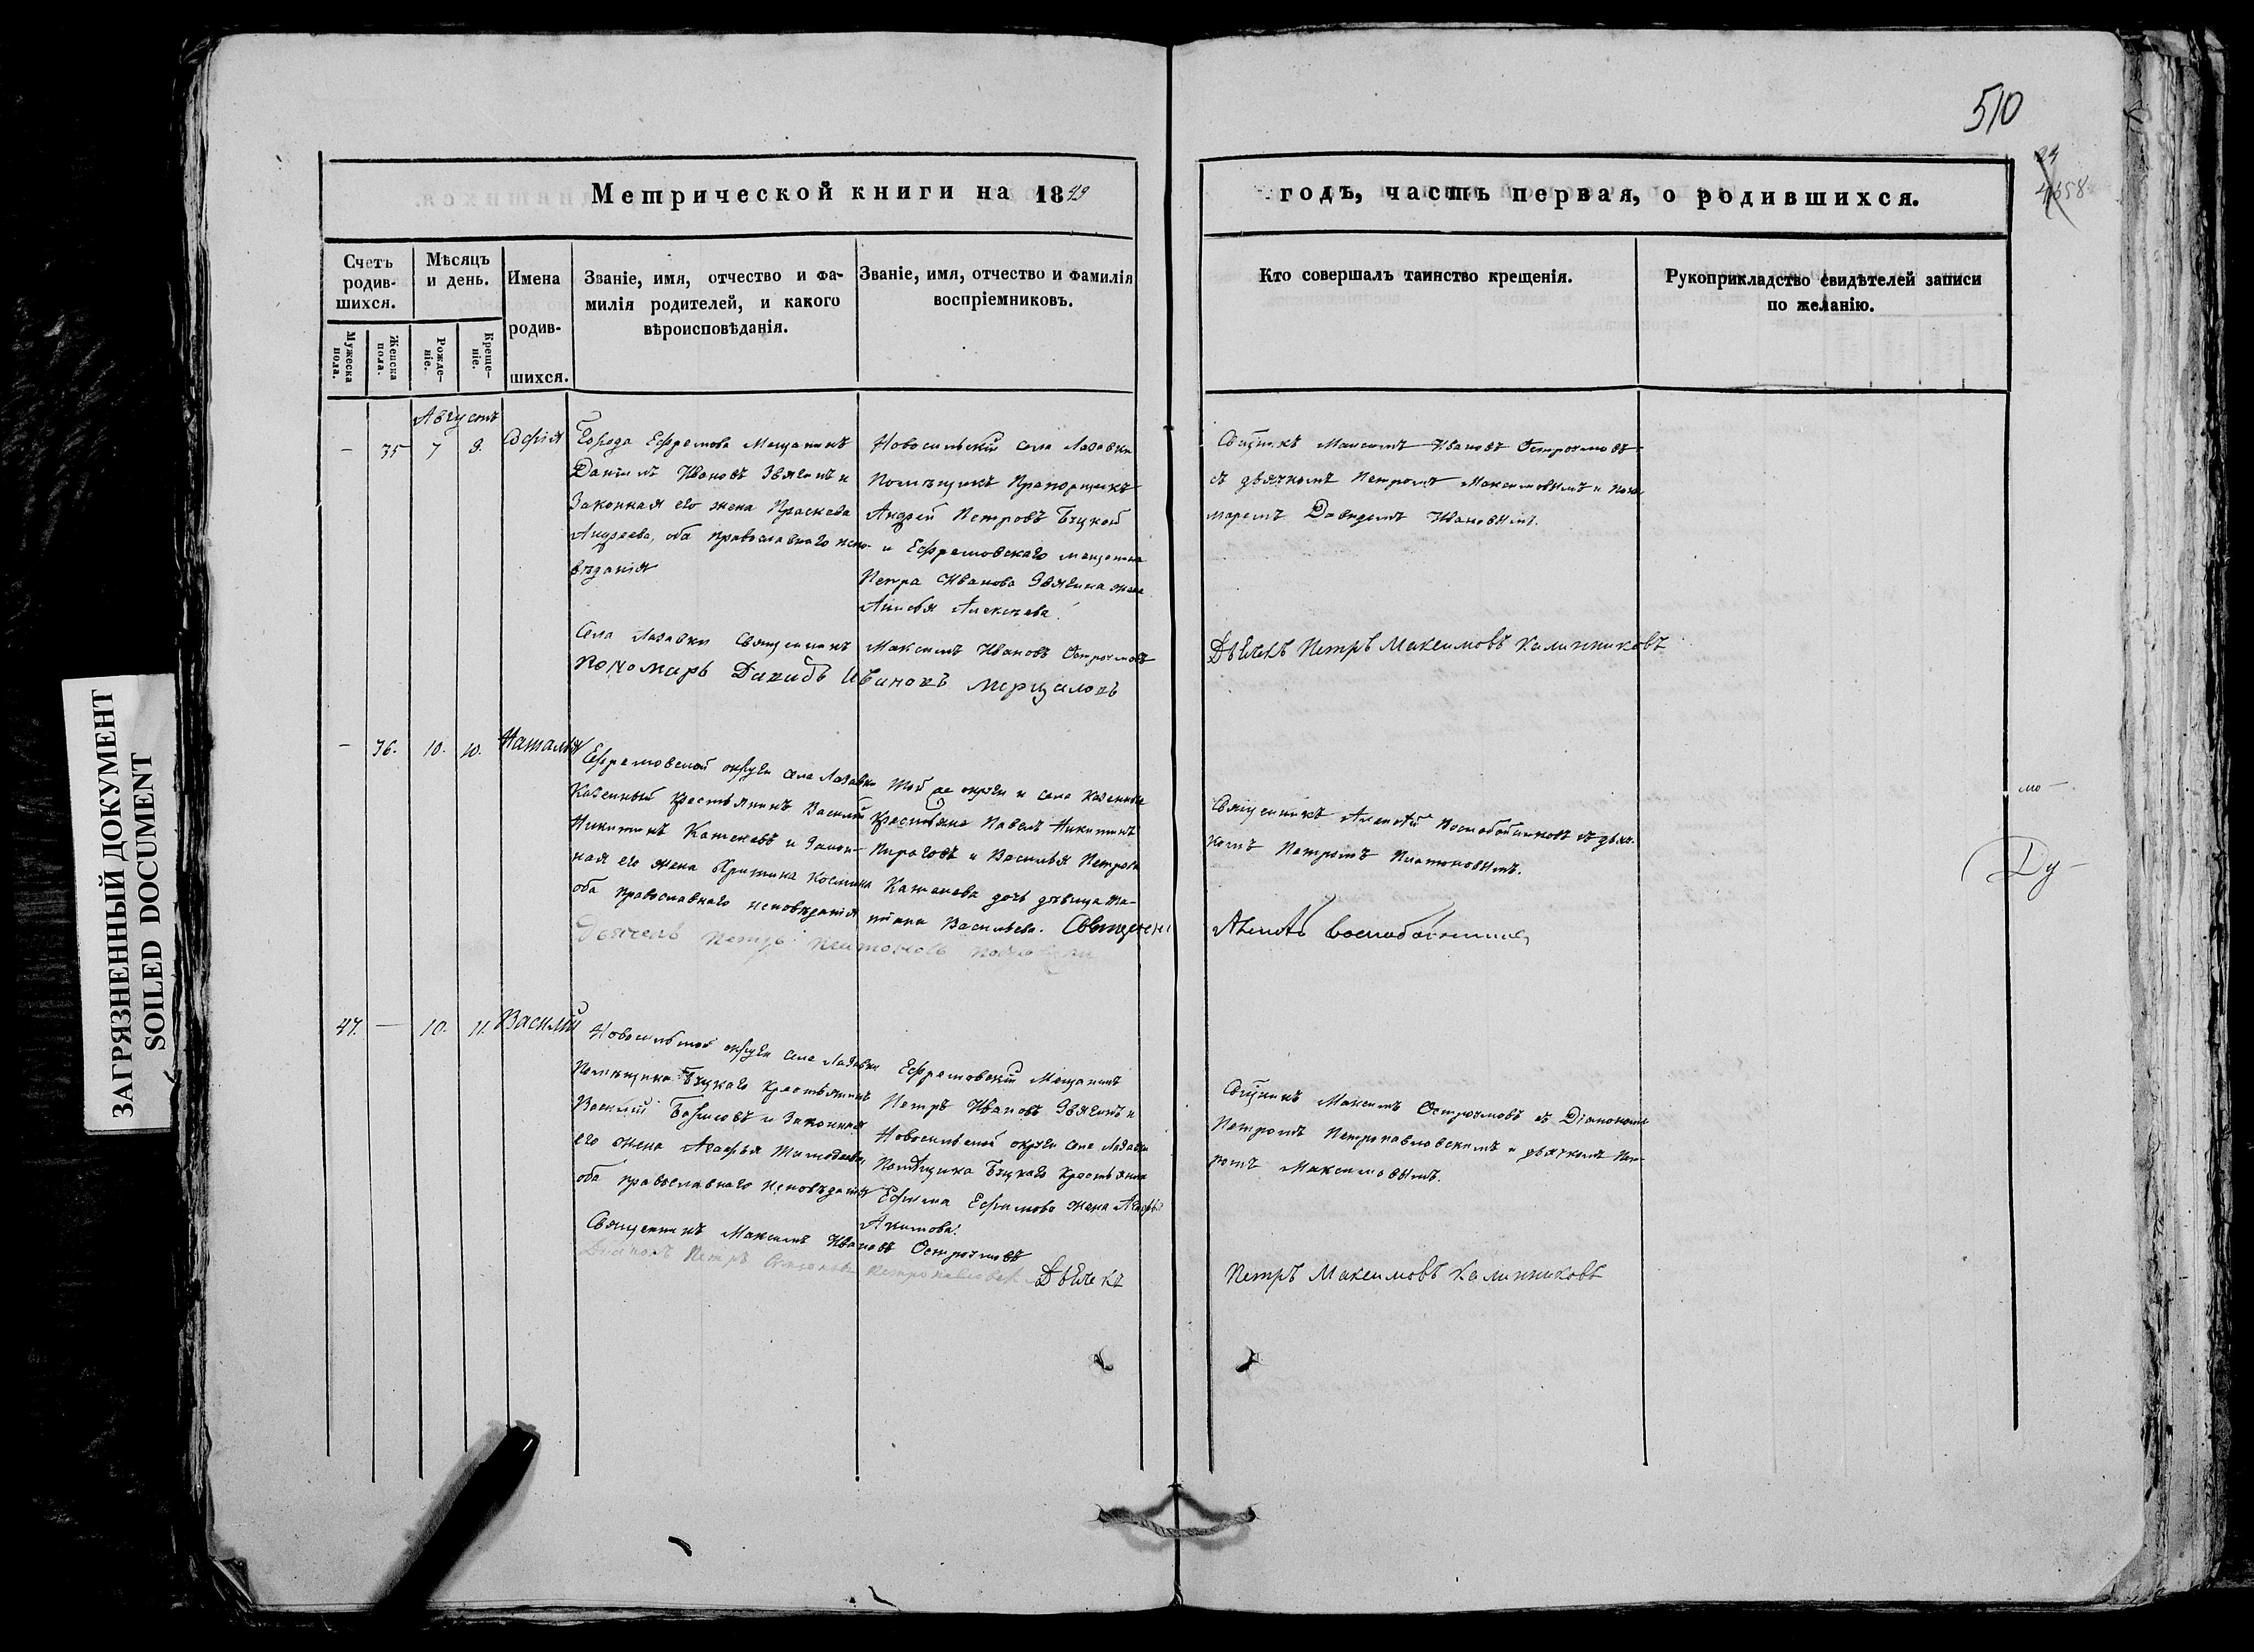 510
24
4658
ЗАГРЯЗНЕННЫЙ ДОКУМЕНТ
SOILED DOCUMENT
Метрической книги на 1849
годъ, часть первая, о родившихся.
Счетъ родив-
шихся.
Мужеска пола.
Женска пола.
Мѣсяцъ
и день.
Рожде-
ніе.
Креще-
ніе.
Имена
родив-
шихся.
Званіе, имя, отчество и фа-
милія родителей, и какого
вѣроисповѣданія.
Званіе, имя, отчество и фамилія
воспріемниковъ.
Кто совершалъ таинство крещенія.
Рукоприкладство свидѣтелей записи
по желанію.
Августъ
- 35 7 9. Софія
Города Ефремова Мещанинъ
Даніилъ Ивановъ Звягинъ и
Законная его жена Праскева
Андреева, оба православнаго испо-
вѣданія
Новосильскій села Лазавки
Помѣщикъ Прапорщикъ
Андрей Петровъ Бѣцкой
и Ефремовскаго мещанина
Петра Иванова Звягина жена
Алексѣева.
Максимъ Ивановъ Остроумовъ
съ дьячкомъ Петромъ Максимовымъ и поно-
маремъ Давидомъ Ивановымъ.
Села Лазавки Священникъ Максимъ Ивановъ Остроумовъ
Пономарь Давидъ Ивановъ Мерцаловъ
Дьячекъ Петръ Максимовъ Калинниковъ
- 36. 10. 10. Наталья
Ефремовской округи села Лазавки
Казенный крестьянинъ Василій
Никитинъ Катеневъ и Закон-
ная его жена Христина Косьмина
оба православнаго исповѣданія
Той же округи и села казенные
крестьяне Павелъ Никитинъ
Пироговъ и Василья Петрова
Катенева дочь дѣвица Та-
тіана Васильева. Священни
Священникъ Алексѣй Воскобойниковъ съ дьяч-
комъ Петромъ Платоновымъ.
Дьячекъ Петръ Платоновъ
Алексѣй Воскобойников
47. - 10. 11. Василій
Новосильской округи села Лазавки
Помѣщика Бѣцкаго крестьянинъ
Василій Борисовъ и Законная
его жена Агафья Тимофеева
оба православнаго исповѣданія
Ефремовскій Мещанинъ
Петръ Ивановъ Звягинъ и
Новосильской округи села Лазавки
Помѣщика Бѣцкаго крестьянина
Ефима Ефимова жена Агафья
Акимова.
Максимъ Остроумовъ съ Діакономъ
Петромъ Петропавловскимъ и дьячкомъ Пет-
ромъ Максимовымъ.
Священникъ Максимъ Ивановъ Остроумовъ
Діаконъ Петръ Петропавловск
Дьячекъ
Петръ Максимовъ Калинниковъ